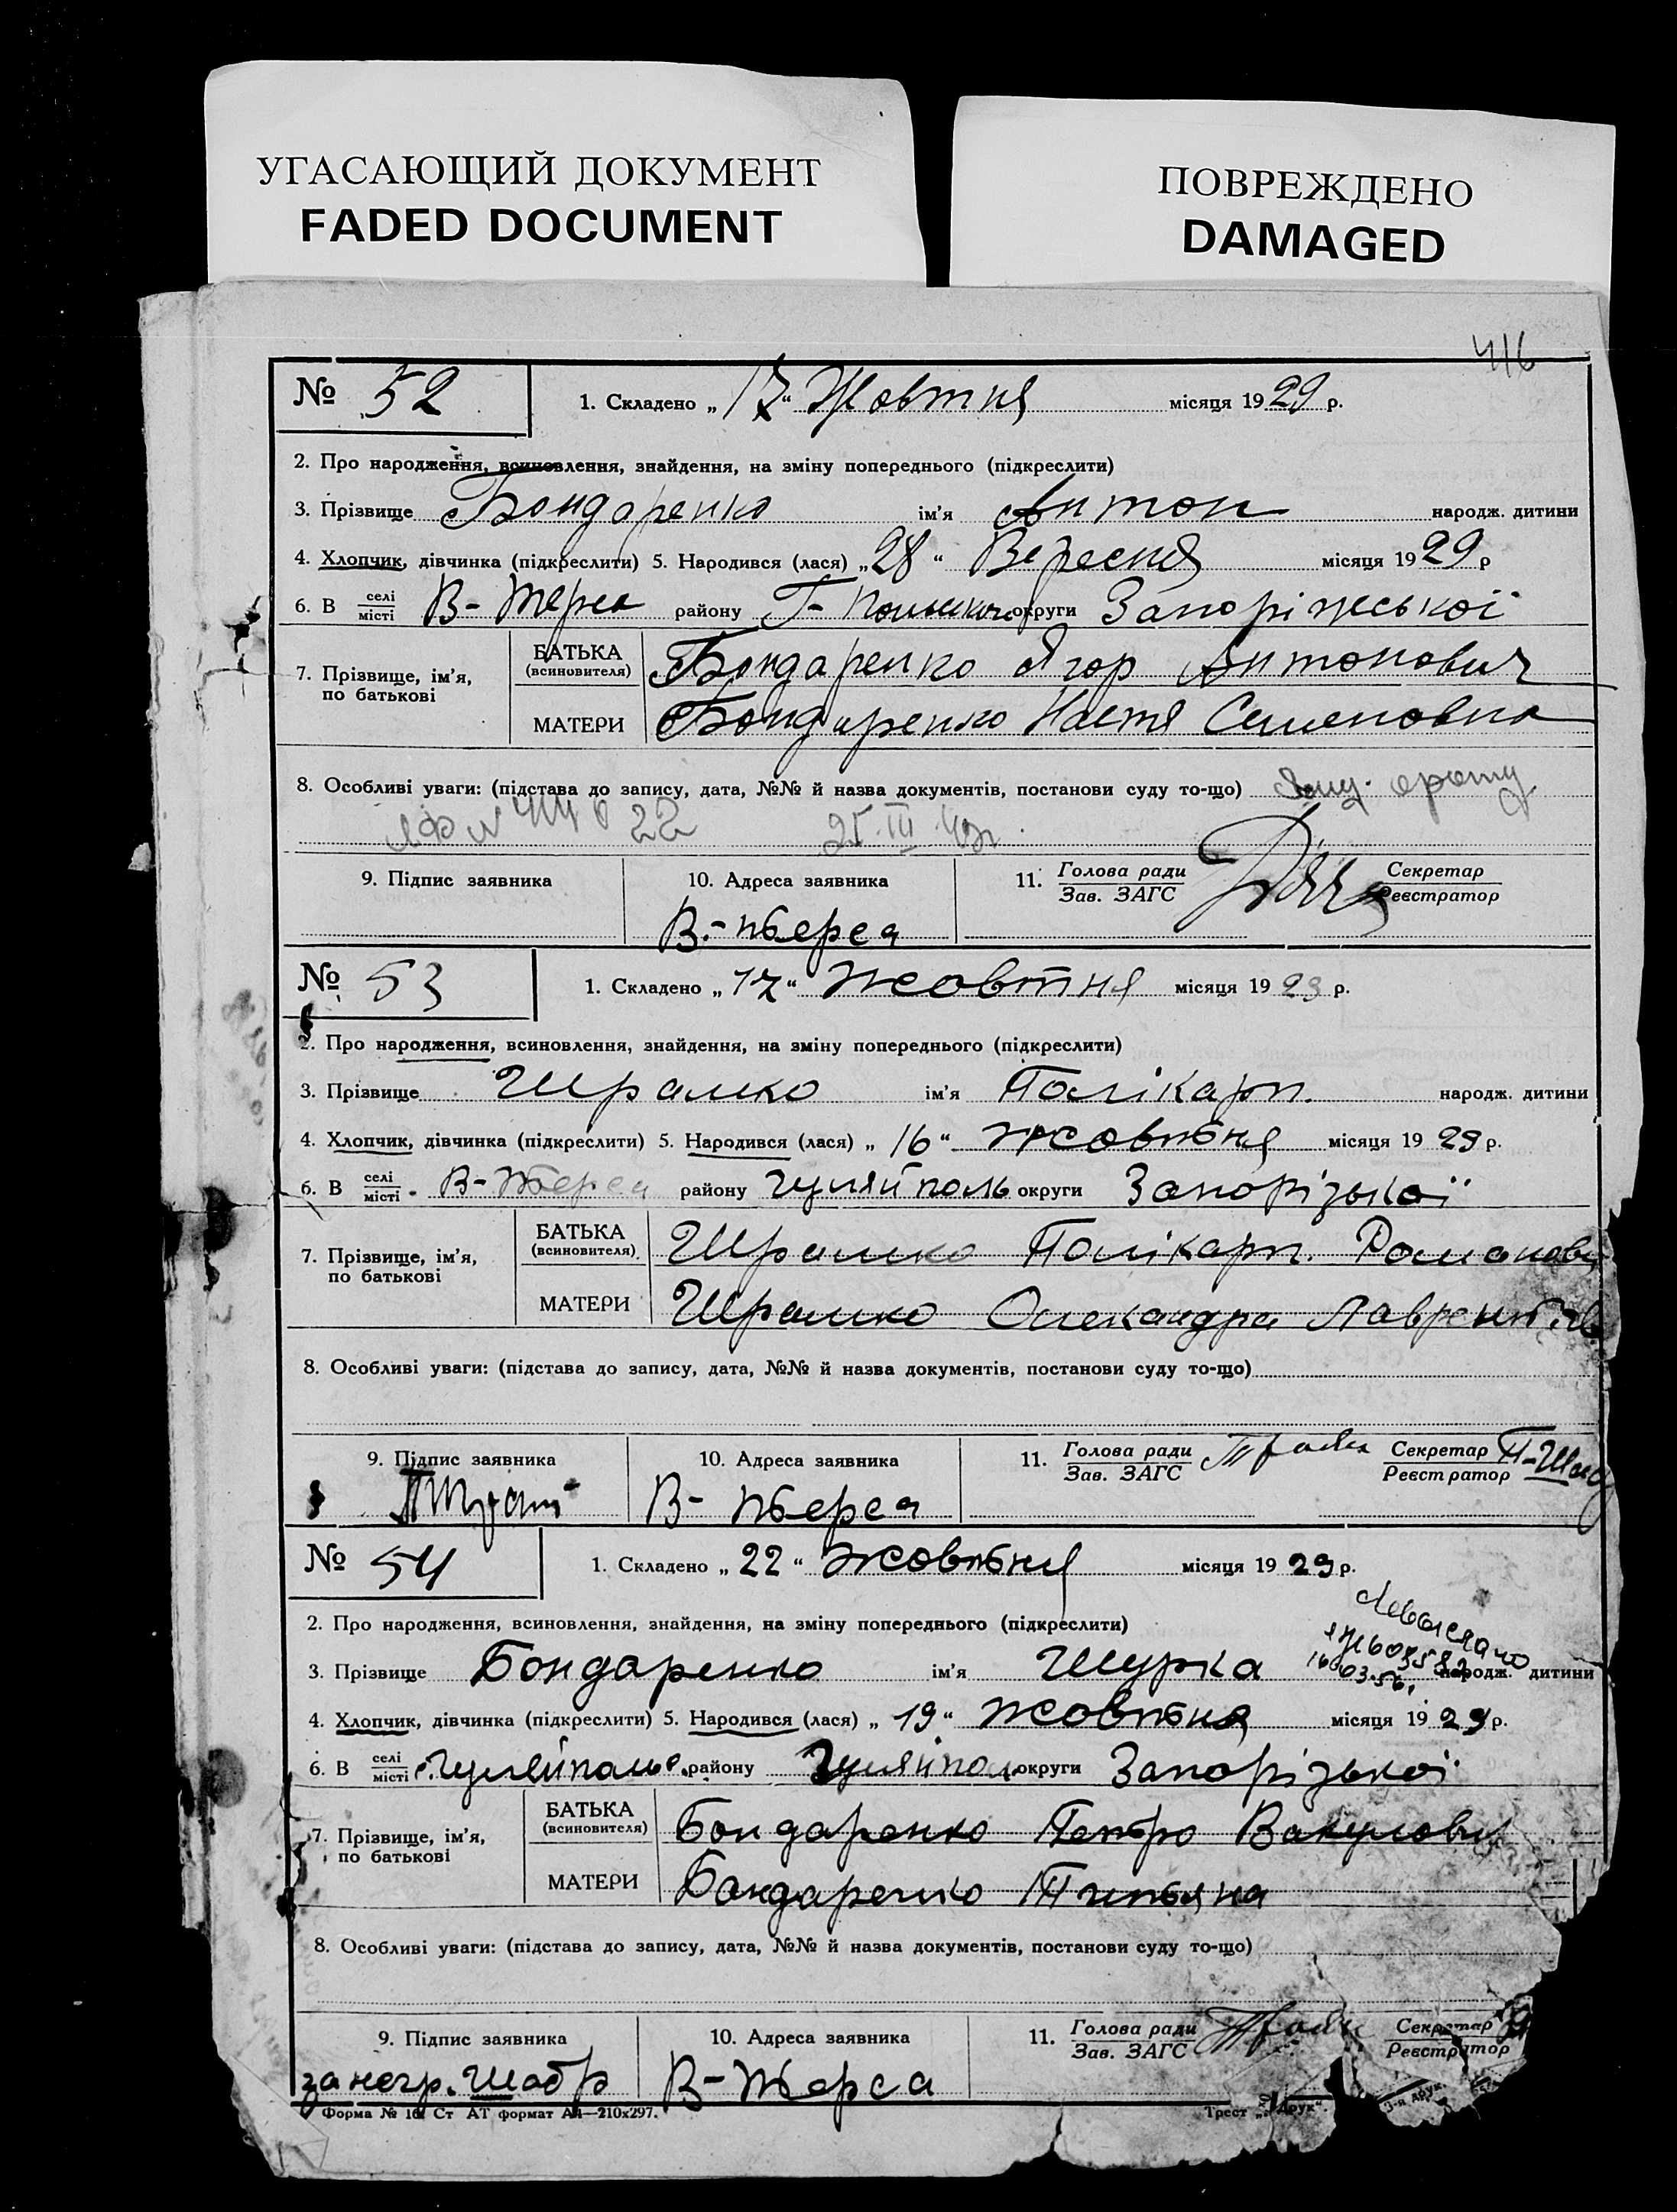 УГАСАЮЩИЙ ДОКУМЕНТ
FADED DOCUMENT
ПОВРЕЖДЕНО
DAMAGED
416
№ 52 1. Складено „17“ Жовтня місяця 1929 р.
2. Про народження, всиновлення, знайдення, на зміну попереднього (підкреслити)
3. Прізвище Бондаренко ім’я Антон народж. дитини
4. Хлопчик, дівчинка (підкреслити) 5. Народився (лася) „28“ Вересня місяця 1929 р
6. В селі місті В-Терса району округи Запоріжської
7. Прізвище, ім’я, по батькові
БАТЬКА (всиновителя) Бондаренко Ягор Антонович
МАТЕРИ Бондаренко Настя Семеновна
8. Особливі уваги: (підстава до запису, дата, №№ й назва документів, постанови суду то-що)
22 25.III
9. Підпис заявника 10. Адреса заявника 11. Голова ради Зав. ЗАГС Секретар Реєстратор
В.-терса
№ 53 1. Складено „17“ жовтня місяця 1929 р.
2. Про народження, всиновлення, знайдення, на зміну попереднього (підкреслити)
3. Прізвище Шрамко ім’я Полікарп. народж. дитини
4. Хлопчик, дівчинка (підкреслити) 5. Народився (лася) „16“ жовтня місяця 1929 р.
6. В селі місті В-Терса району гуляйполь округи Запорізької
7. Прізвище, ім’я, по батькові
БАТЬКА (всиновителя) Шрамко Полікарп. Романов
МАТЕРИ Шрамко Олександра
8. Особливі уваги: (підстава до запису, дата, №№ й назва документів, постанови суду то-що)
9. Підпис заявника 10. Адреса заявника 11. Голова ради Зав. ЗАГС Секретар Реєстратор
В-терса
№ 54 1. Складено „22“ жовтня місяця 1929 р.
2. Про народження, всиновлення, знайдення, на зміну попереднього (підкреслити)
3. Прізвище Бондаренко ім’я Шурка народж. дитини
4. Хлопчик, дівчинка (підкреслити) 5. Народився (лася) „19“ жовтня місяця 1929 р.
6. В селі місті гуляйполь району Гуляйпол округи Запорізької
7. Прізвище, ім’я, по батькові
БАТЬКА (всиновителя) Бондаренко Петро Вакулови
МАТЕРИ Бондаренко Титяна
8. Особливі уваги: (підстава до запису, дата, №№ й назва документів, постанови суду то-що)
9. Підпис заявника 10. Адреса заявника 11. Голова ради Зав. ЗАГС Секретар Реєстратор
за негр. В-Терса
Форма № 16 Ст АТ формат А4—210х297. Трест